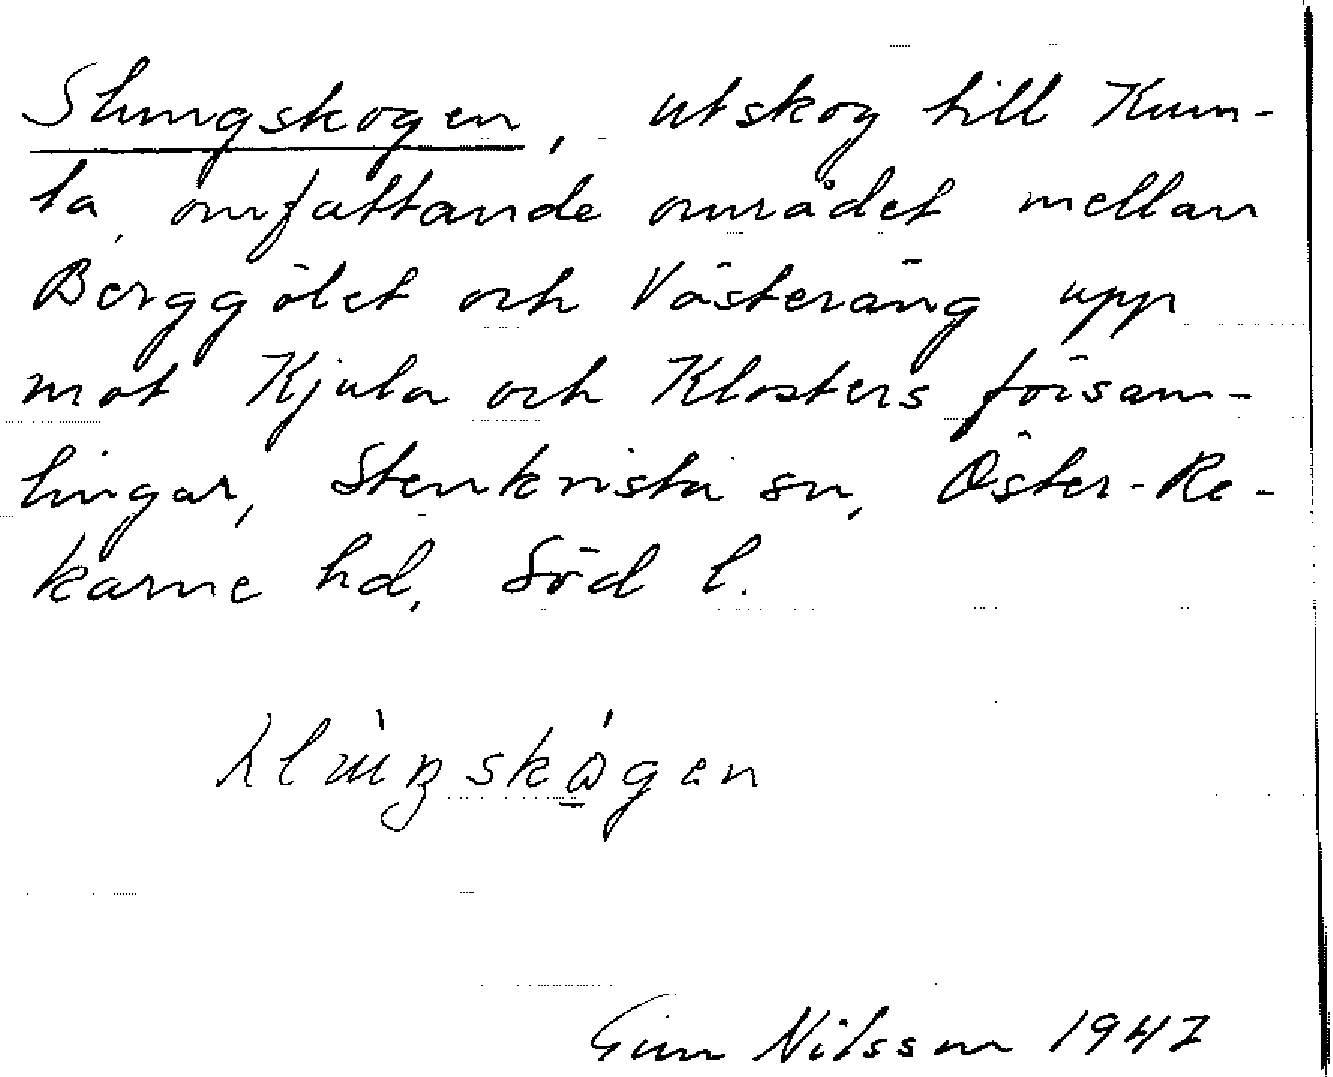 Slungskogen, utskog till Kum-
la, omfattande området mellan
Berggölet och Västeräng upp
mot Kjula och Klosters försam-
lingar, Stenkvista sn, Öster-Re-
karne hd, Söd l.
Gun Nilsson 1947